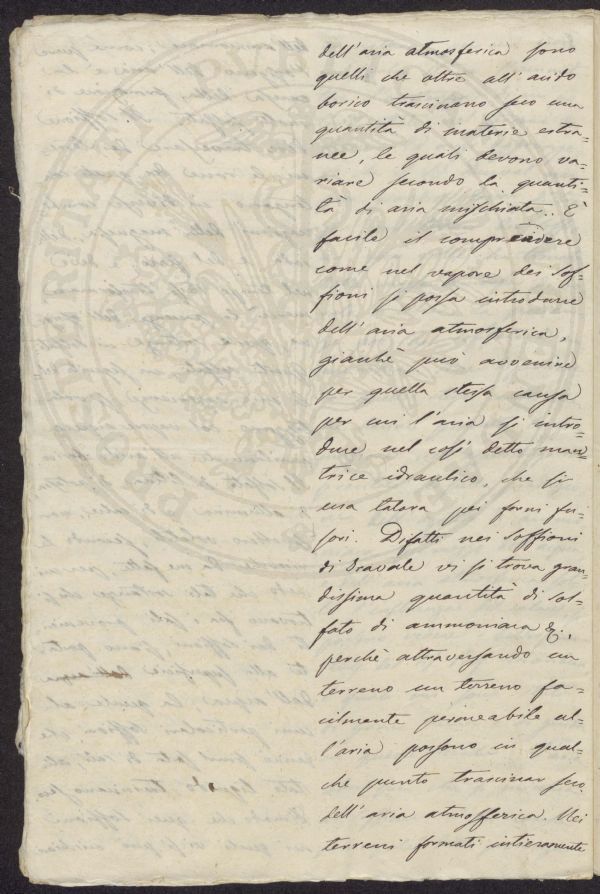 dell'aria atmosferica sono
quelli che oltre all'acido
borico trascinano seco una
quantità di materie estra-
nee, le quali devono va-
riare secondo la quanti-
tà di aria mischiata. È
facile il comprendere
come nel vapore dei sof-
fioni si possa introdurre
dell'aria atmosferica,
giacchè può avvenire
per quella stessa causa
per cui l'aria si intro-
duce nel così detto
trice idraulico, che si
usa talora pei forni fu-
sori. Difatti nei soffioni
di Travale vi si trova gran-
dissima quantità di sol-
fato di ammoniaca &.,
perchè attraversando un
terreno un terreno fa-
cilmente permeabile al-
l'aria possono in qual-
che punto trascinar seco
dell'aria atmosfferica. Nei
terreni formati intieramente